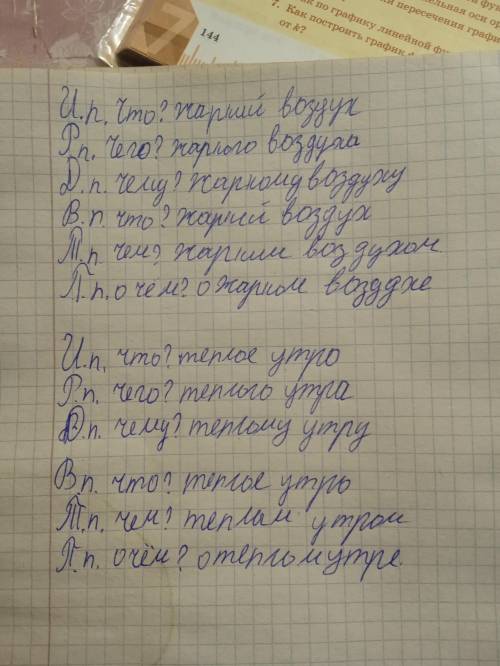 144
7. Как построить график
от k?
И.п. что? жаркий воздух
Р.п. чего? жаркого воздуха
Д.п. чему? жаркому воздуху
В.п. что? жаркий воздух
Т.п. чем? жарким воздухом
П.п. о чём? о жарком воздухе
И.п. что? теплое утро
Р.п. чего? теплого утра
Д.п. чему? теплому утру
В.п. что? теплое утро
Т.п. чем? теплым утром
П.п. о чём? о теплом утре.